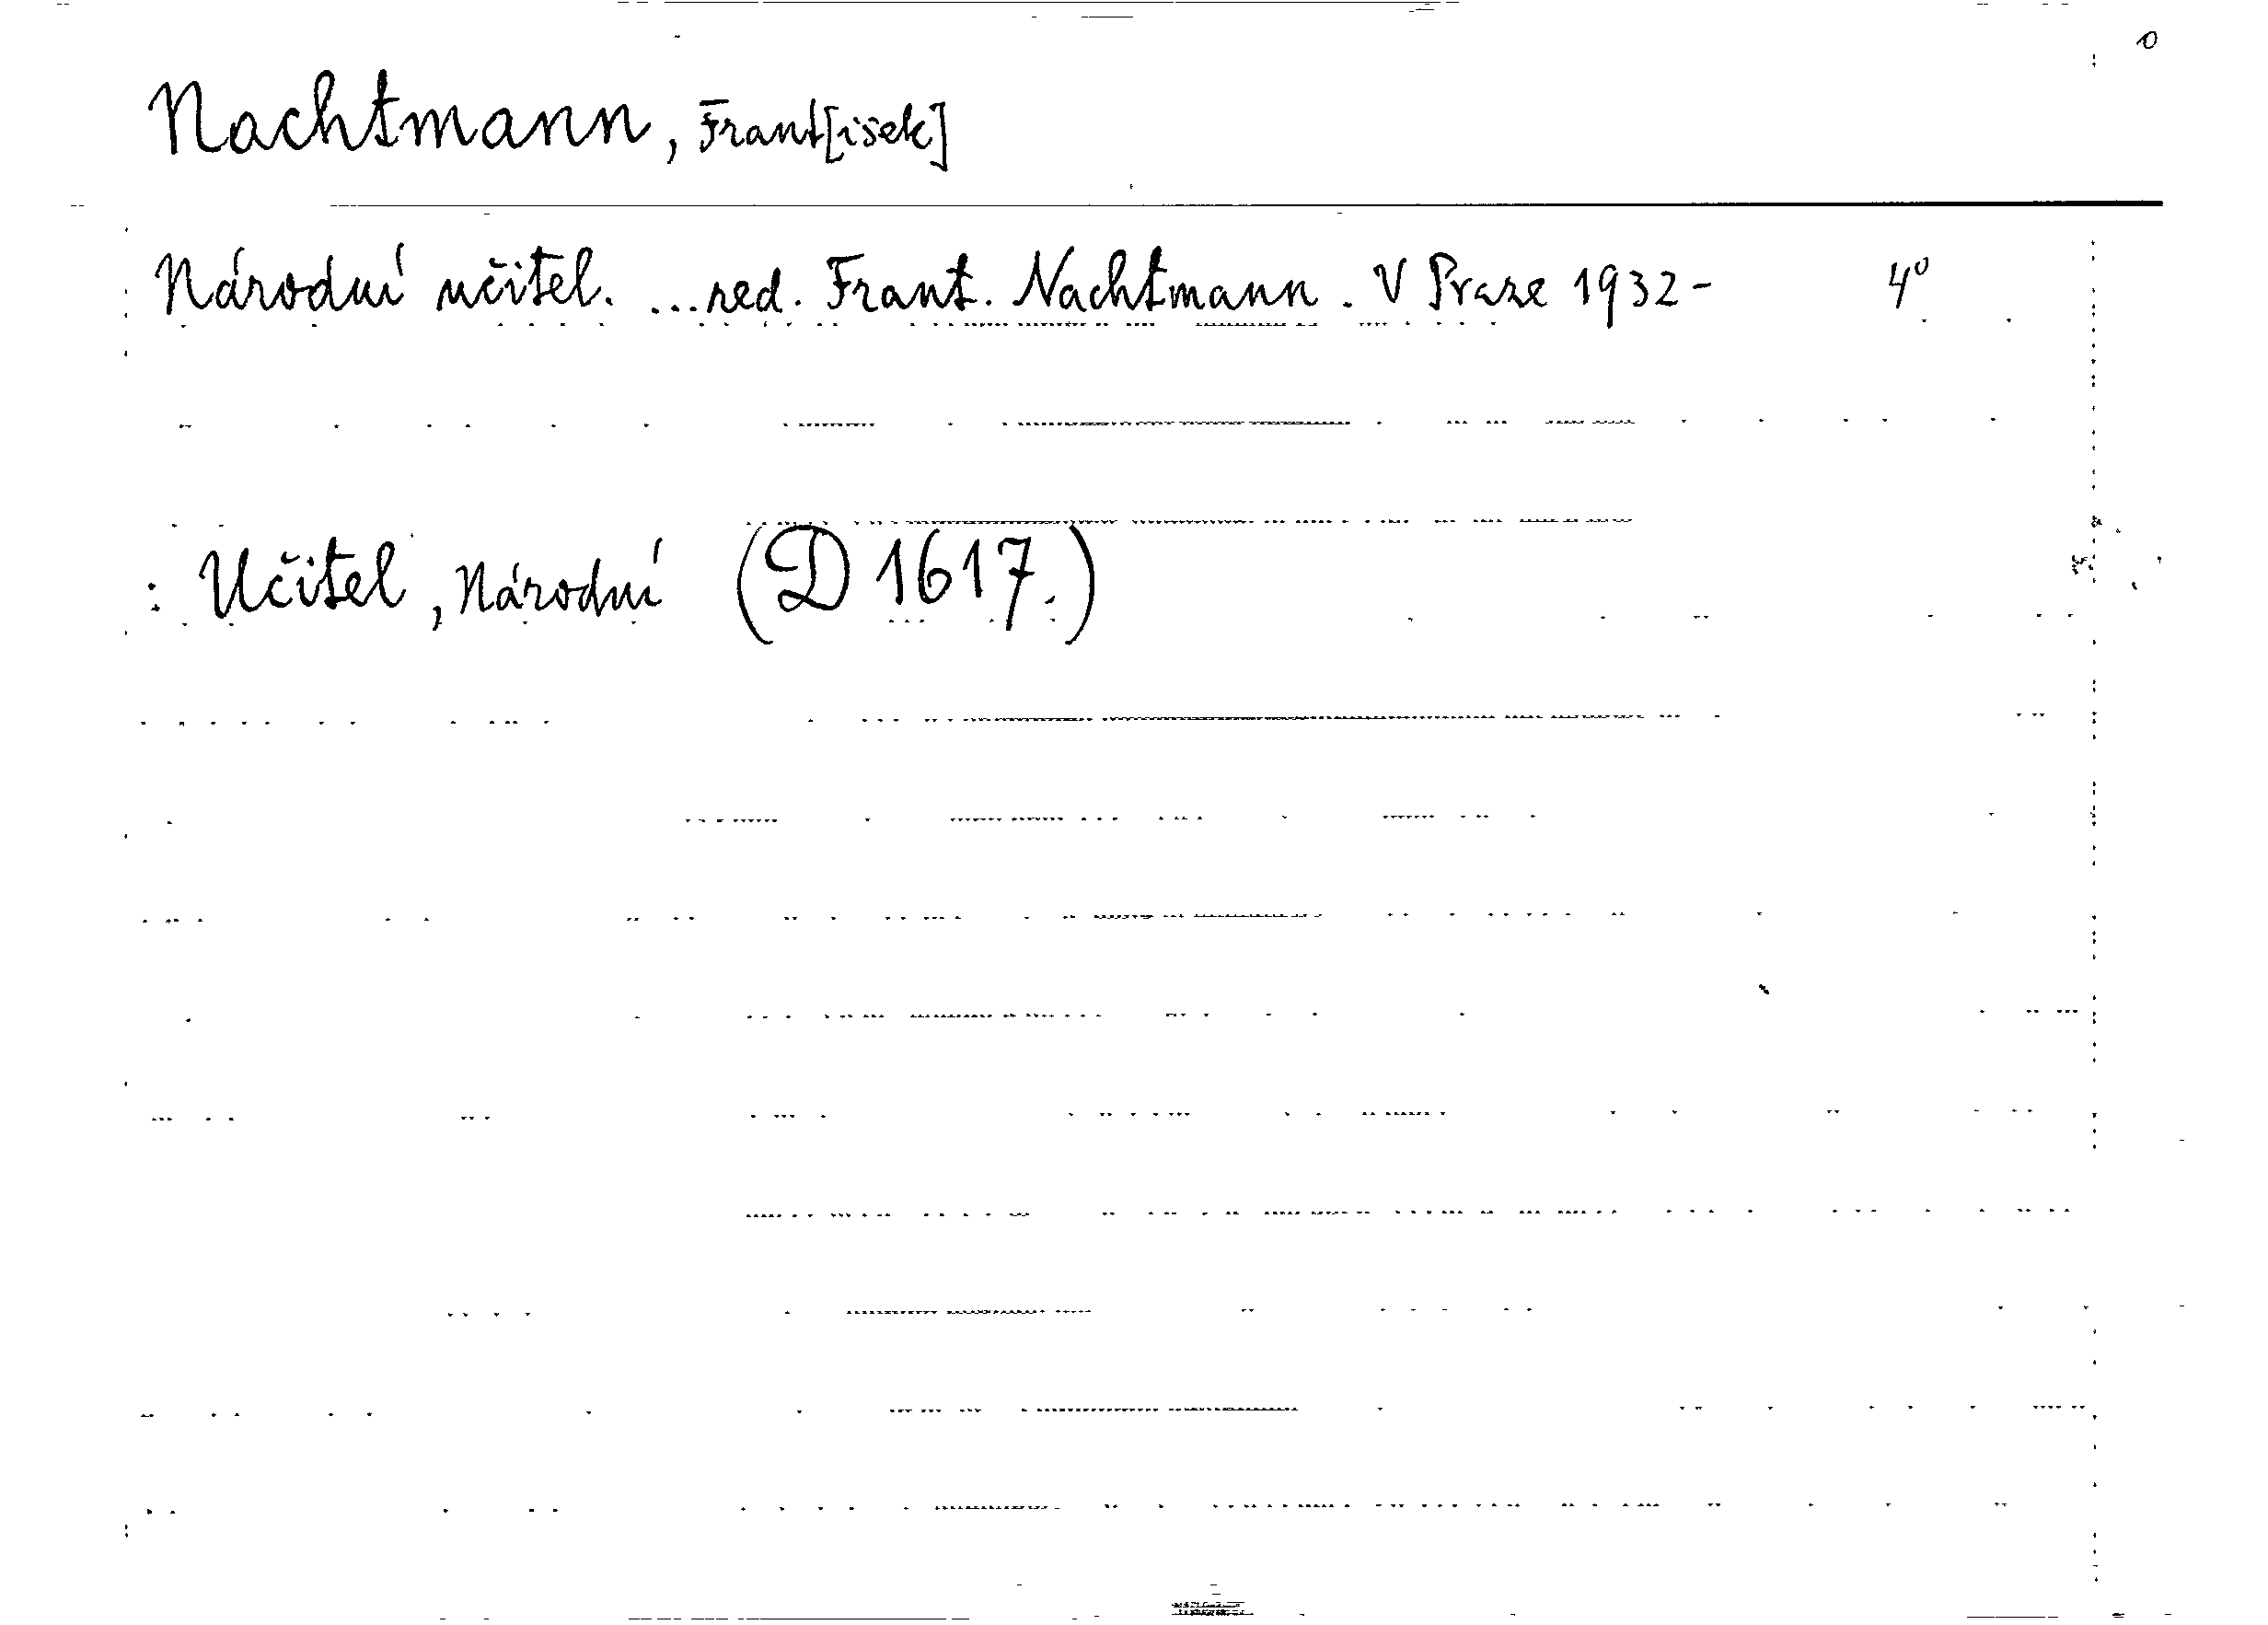 o
Nachtmann, Frant[išek]
Národní učitel. ...red. Frant. Nachtmann. V Praze 1932- 4°
: Učitel, Národní (D 1617.)